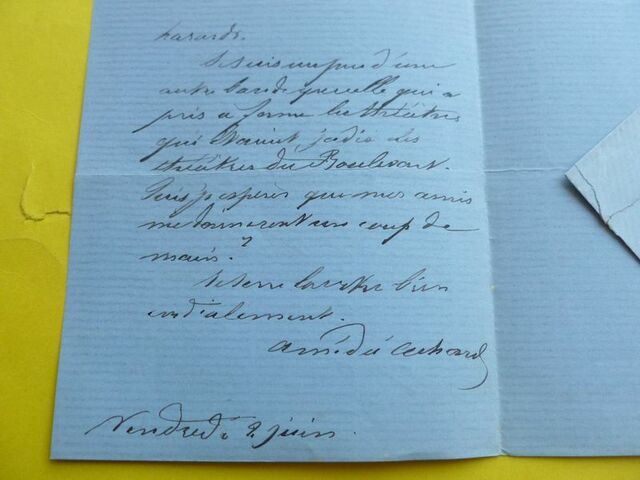 hasards.
Je suis un peu d'une
autre bande que celle qui a
pris à ferme les théâtres
qui étaient jadis les
théâtres du Boulevart.
Puis j'espérer que mes amis
me donneront un coup de
main ?
Je serre la vôtre bien
cordialement.
Amédée Achard
Vendredi 2 juin.